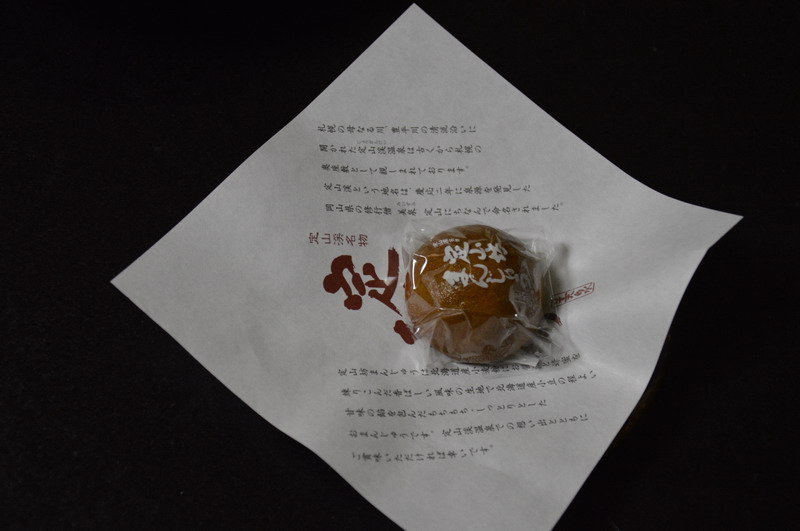 札幌の母なる川、豊平川の清流沿いに
開かれた定山渓温泉は古くから札幌の
奥座敷として親しまれております。
定山渓という地名は、慶応二年に泉源を発見した
岡山県の修行僧 美泉 定山にちなんで命名されました。
定山渓名物
定
定山坊
まんじゅ
定山坊まんじゅうは北海道産小麦
練りこんだ香ばしい風味の生地で北海道産小豆の程よい
甘味の餡を包んだもちもち、しっとりとした
おまんじゅうです。定山渓温泉での想い出とともに
ご賞味いただければ幸いです。